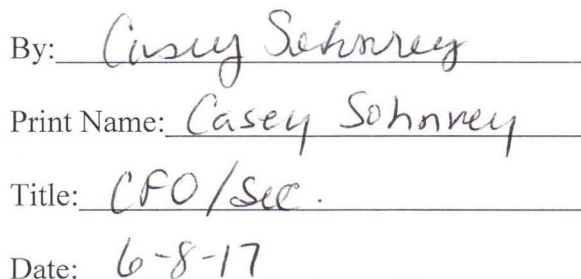 By: Casey Sohnrey
Print Name: Casey Sohnrey
Title: CFO/Sec.
Date: 6-8-17